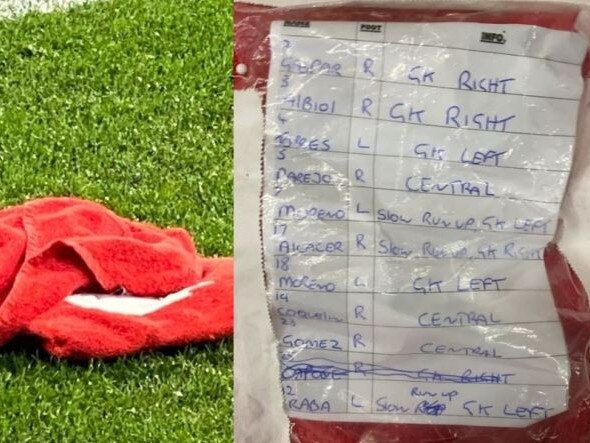 NAME FOOT INFO
2
GASPAR R GK RIGHT
3
ALBIOL R GK RIGHT
4
TORRES L GK LEFT
5
PAREJO R CENTRAL
7
MORENO L SLOW RUN UP, GK LEFT
17
ALCACER R SLOW RUN UP, GK RIGHT
18
MORENO L GK LEFT
14
COQUELIN R CENTRAL
23
GOMEZ R CENTRAL
R GK RIGHT
12 RUN UP
RABA L SLOW GK LEFT